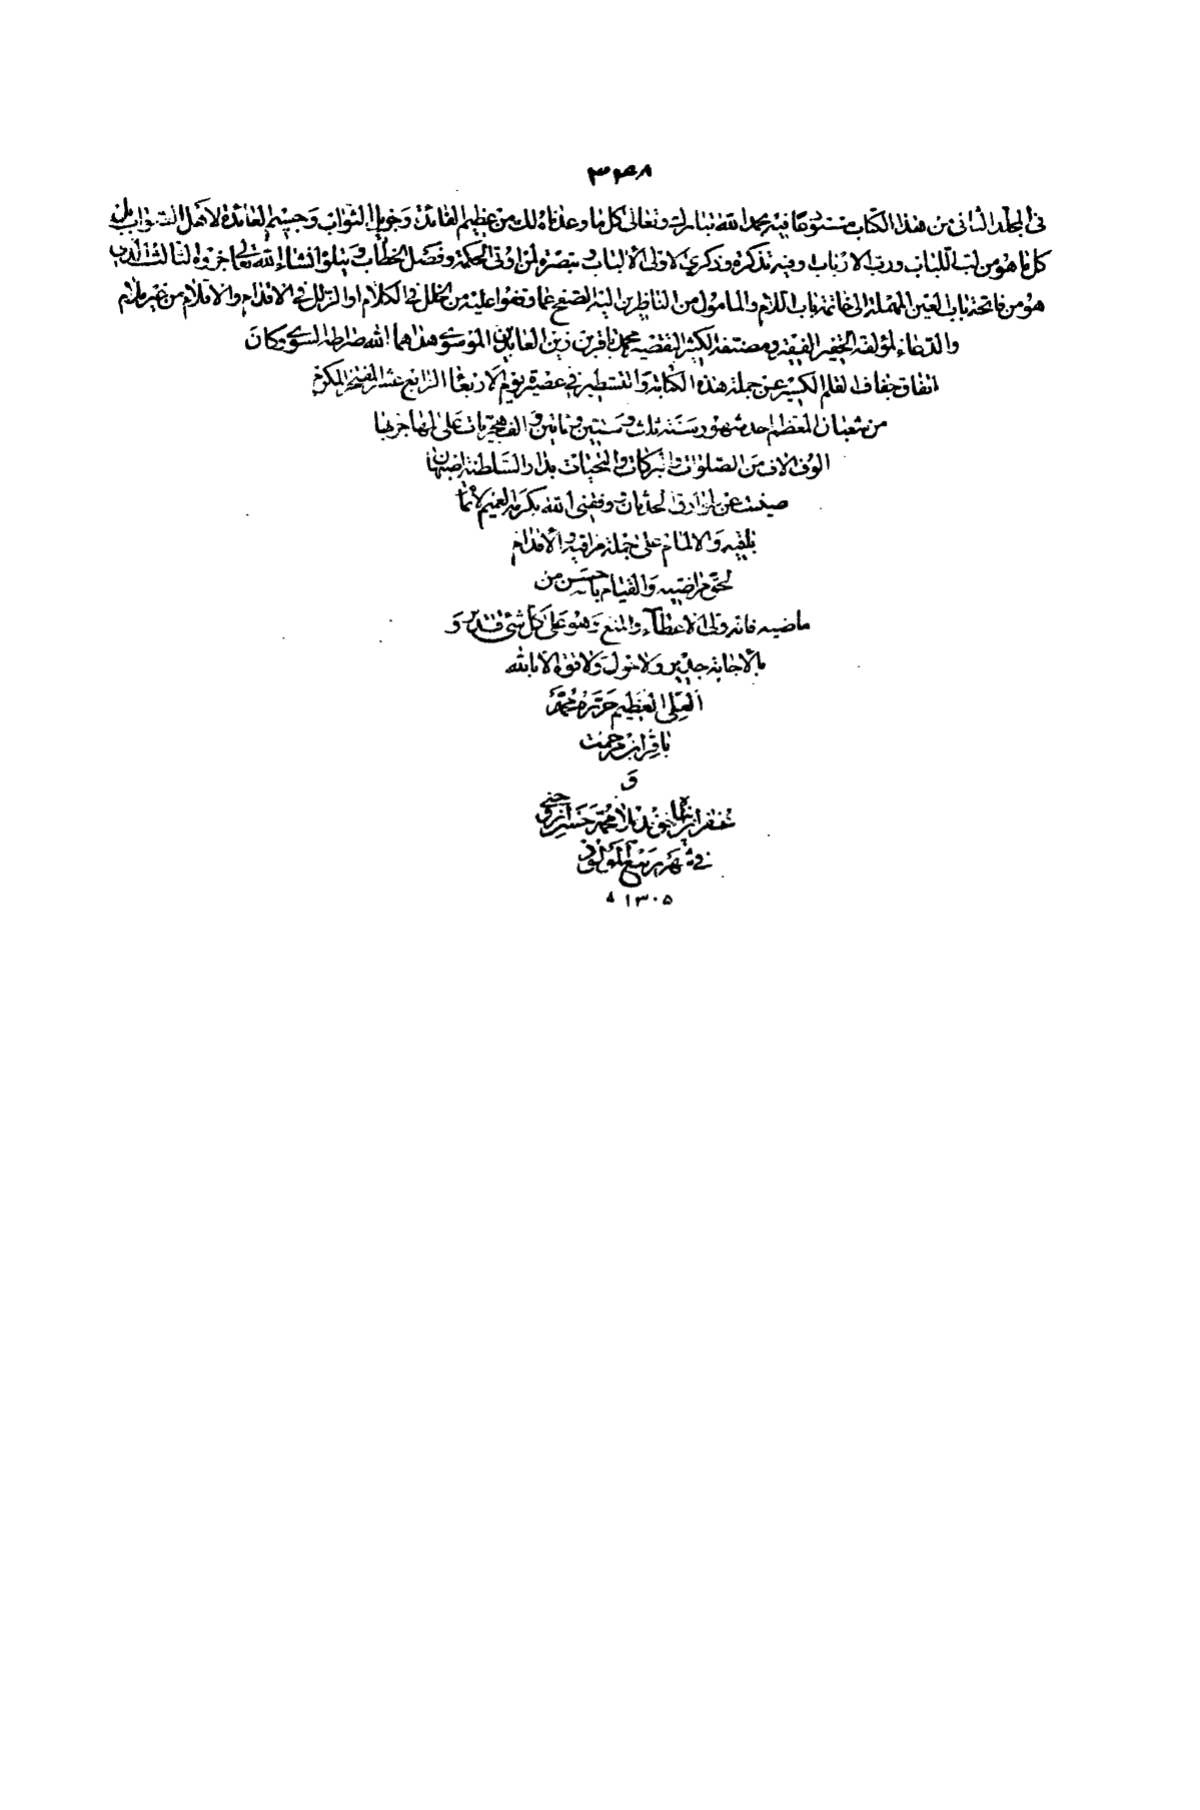 ٣٤٨
فى المجلد الثانى من هذا الكتاب مستودعا فيه بحمد الله تبارك وتعالى كل ما وعدناه لك من عظيم الفائدة وجزيل الثواب وجسيم العائدة لاهل الصواب بل
كل ما هو من لب اللباب ورب الارباب وفيه تذكرة وذكرى لاولى الألباب وتبصرة لمن اوتى الحكمة وفصل الخطاب ويتلوه انشاء الله تعالى جزوه الثالث الذى
هو من فاتحة باب العين المهملة الى خاتمة باب اللام والمامول من الناظرين اليه الصفح عما وقفوا عليه من الخلل فى الكلام او الزلل فى الاقدام والاقلام من غير ملام
والدعاء لمؤلفه الحقير الفقيه ومصنفه الكثير النقصيه محمد باقر بن زين العابدين الموسوى هداهما الله صراطه السوى وكان
اتفاق جفاف القلم الكسير عن جملة هذه الكتابة والتسطير فى عصيرة يوم الاربعا الرابع عشر المفتخر المكرم
من شعبان المعظم احد شهور سنة ثلث وستين ومأتين والف هجريات على مهاجرها
الوف الاف من الصلوات والبركات والتحيات بدار السلطنة اصبهان
صينت عن طوارق الحدثان وفقنى الله بكرمه العميم لأتمام
بقيه والالمام على جملة مراقيه والأقدام
لحق مراضيه والقيام باحسن من
ماضيه فانه ولى الاعطاء والمنع وهو على كل شئ قدير و
بالأجابة جدير ولا حول ولا قوة الا بالله
العلى العظيم حرره محمد
باقر ابن رحمت
و
جعفر ابن محمد حسن
فى شهر ربيع المولود
١٣٠٥ ه